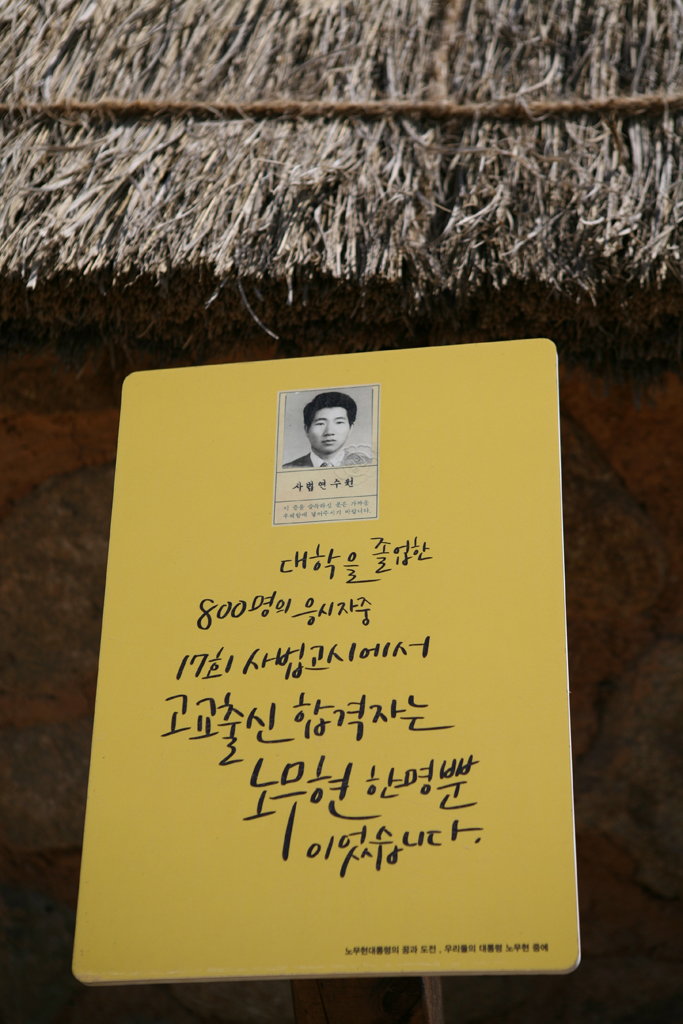 사법연수원
이 증을 습득하신 분은 가까운
우체함에 넣어주시기 바랍니다.
대학을 졸업한
800명의 응시자중
17회 사법고시에서
고교출신 합격자는
노무현 한명뿐
이었습니다.
노무현대통령의 꿈과 도전, 우리들의 대통령 노무현 중에